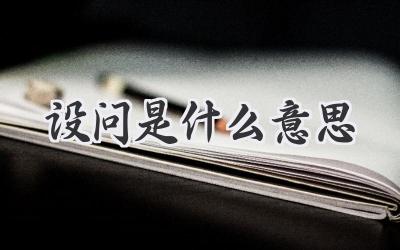 设问是什么意思